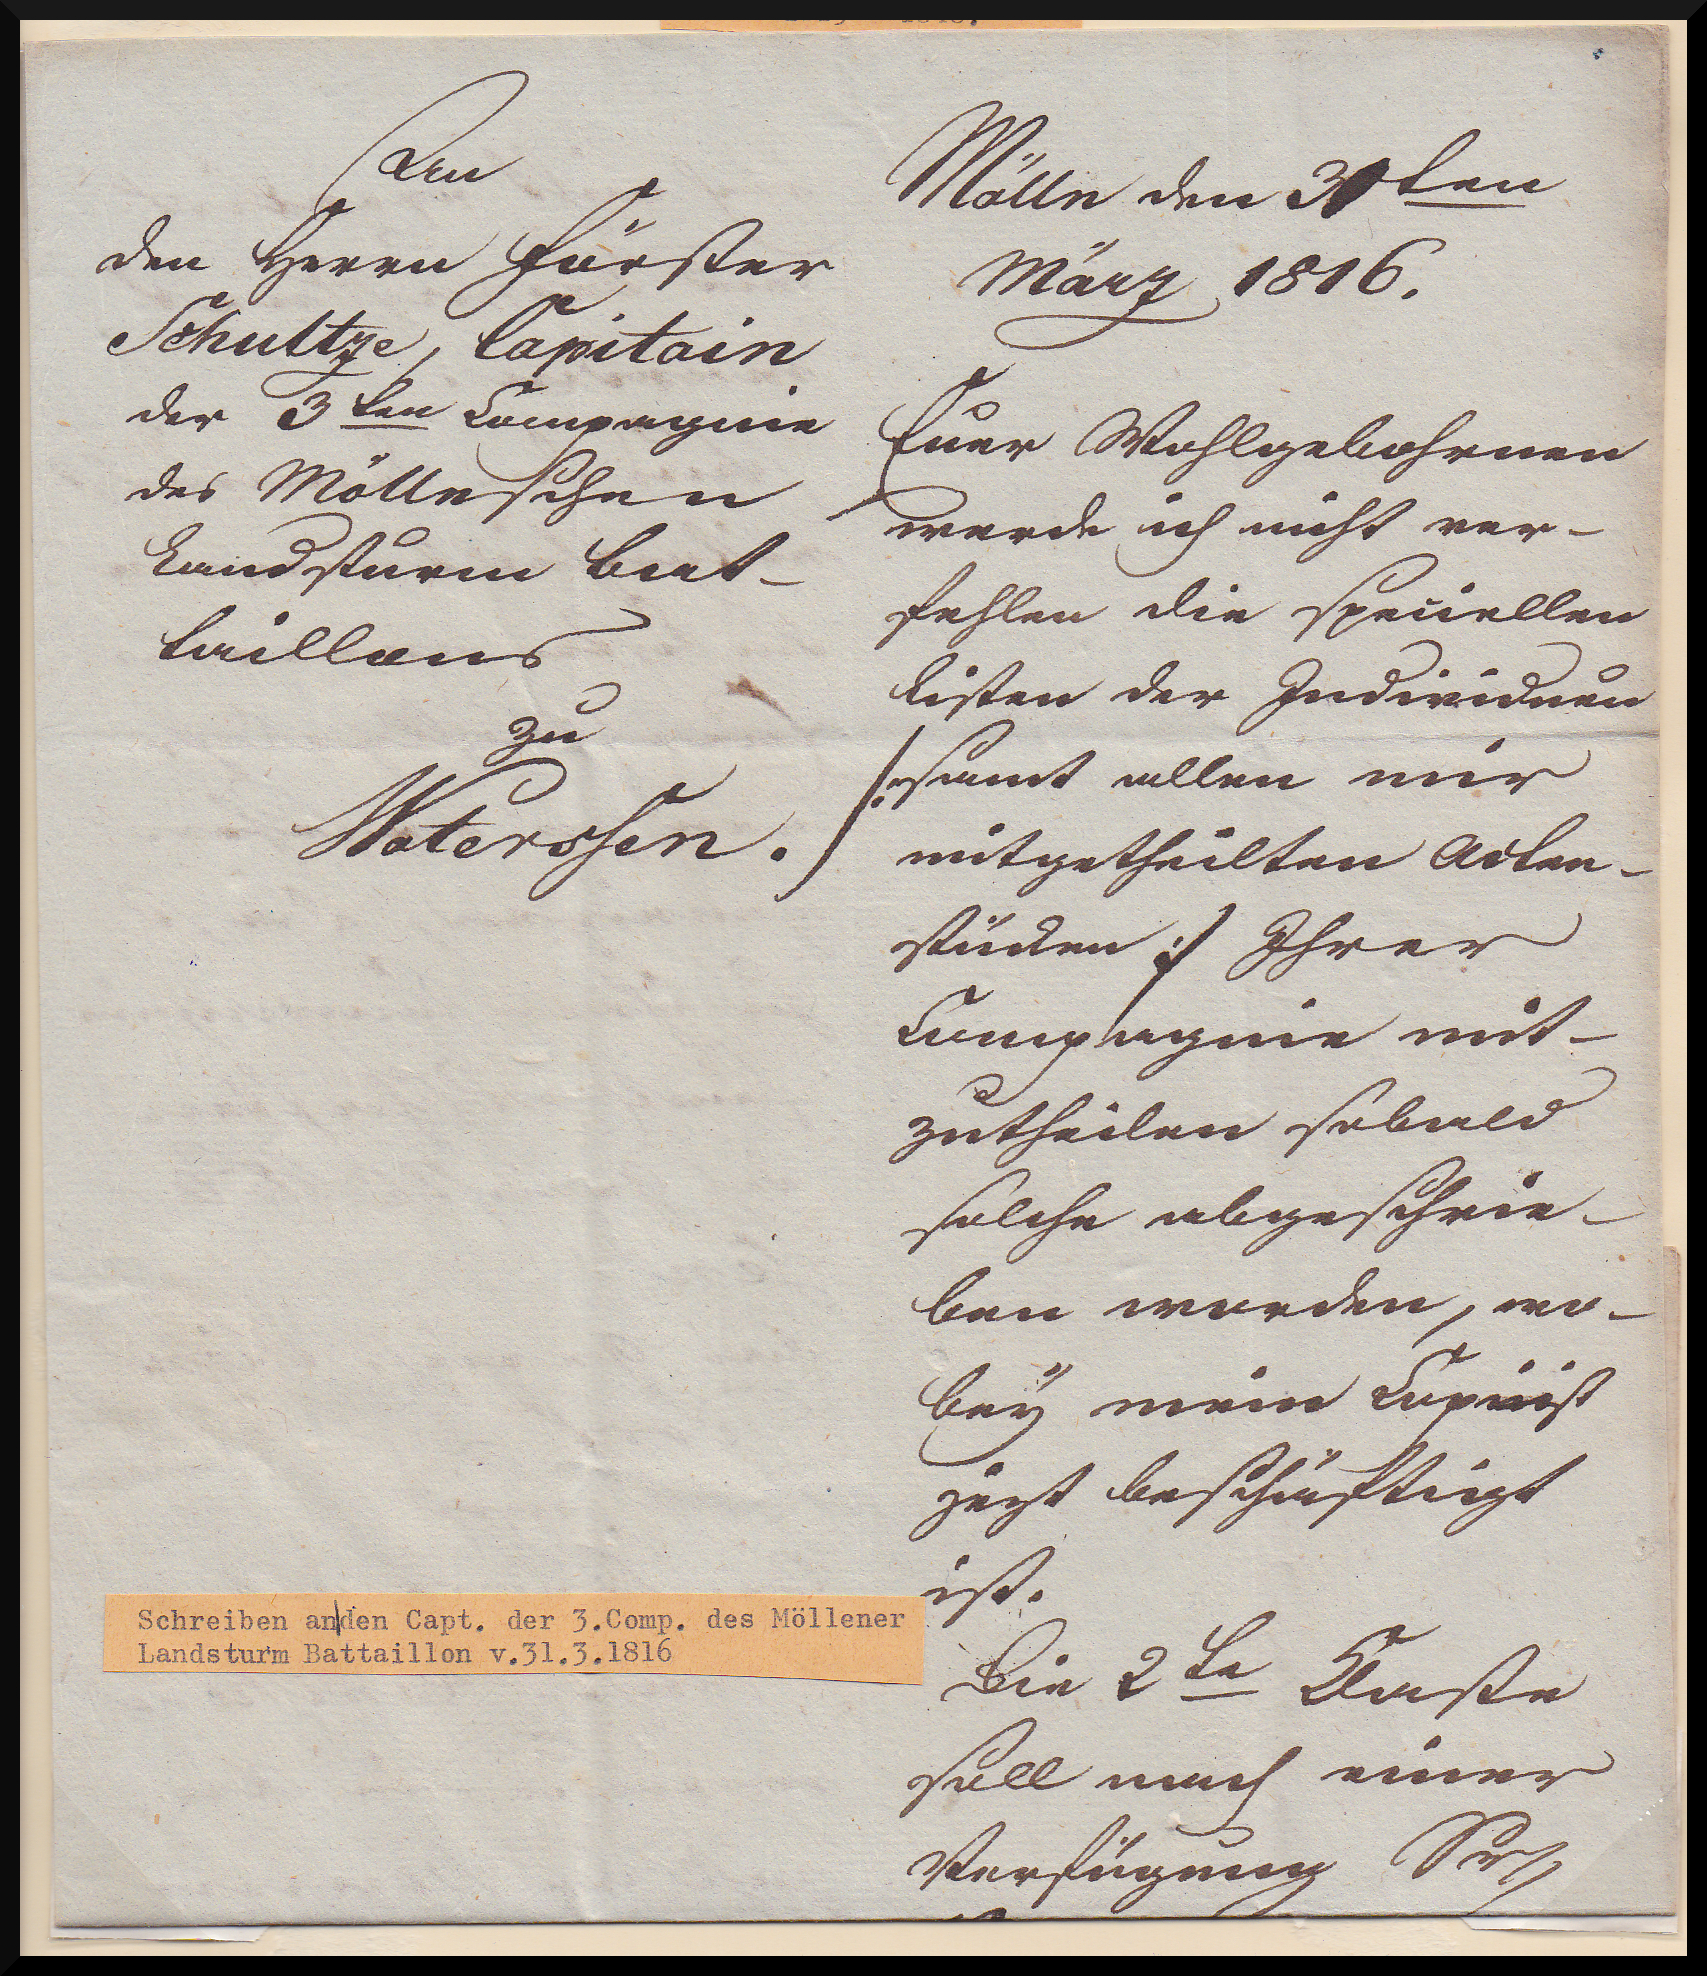 An
den Herrn Förster
Schultze, Capitain
der 3ten Compagnie
des Möllnschen
Landsturm Bat-
taillons
zu
Waterssen.
Mölln den 31ten
März 1816.
Euer Wohlgebohrnen
werde ich nicht ver-
fehlen die speciellen
Listen der Individuen
/: samt allen mir
mitgetheilten Acten-
stücken :/ Ihrer
Compagnie mit-
zutheilen sobald
solche abgeschrie-
ben worden, wo-
bey mein Copiist
jezt beschäftigt
ist.
Die 2te Classe
soll nach einer
Verfügung
Schreiben anden Capt. der 3.Comp. des Möllener
Landsturm Battaillon v.31.3.1816